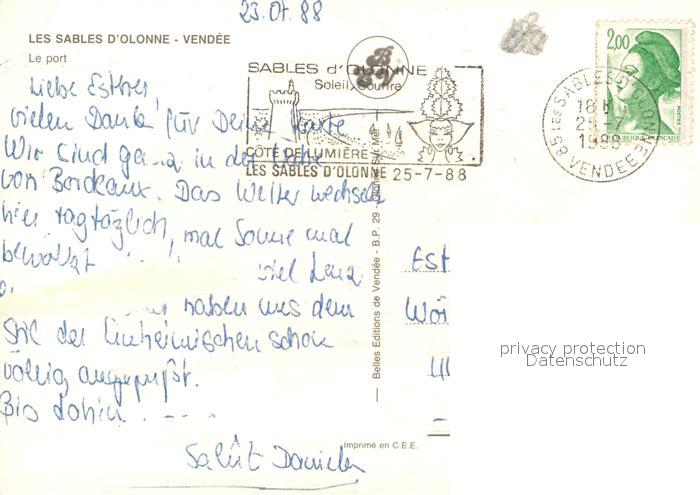 23.07.88
LES SABLES D'OLONNE - VENDÉE
Le port
SABLES d'OLONNE
Soleil Sourire
CÔTE DE LUMIÈRE
LES SABLES D'OLONNE 25-7-88
2,00
POSTES
RÉPUBLIQUE FRANÇAISE
85 LES SABLES D'OLONNE
18 H
25-7
1988
VENDEE
Liebe Esther,
vielen Dank für Deine Karte.
Wir sind genau in der
von Bordeaux. Das Wetter wechselt
hier tagtäglich, mal Sonne mal
bewölkt
viel
haben uns dem
Stil der Einheimischen schon
völlig angepaßt.
Bis dahin . - - -
Salût Daniela
Belles Editions de Vendée - B.P. 29
Imprimé en C.E.E.
Est
Wöi
privacy protection
Datenschutz